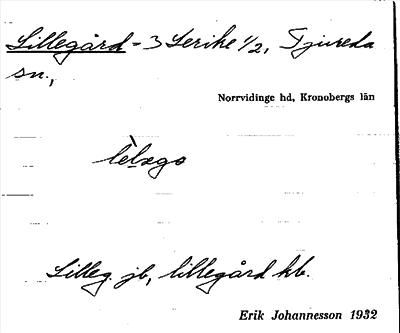 Lillegård - 3 Lerike 1/2, Tjureda
sn.,
Norrvidinge hd, Kronobergs län
Lilleg. jb, lillegård kb.
Erik Johannesson 1932